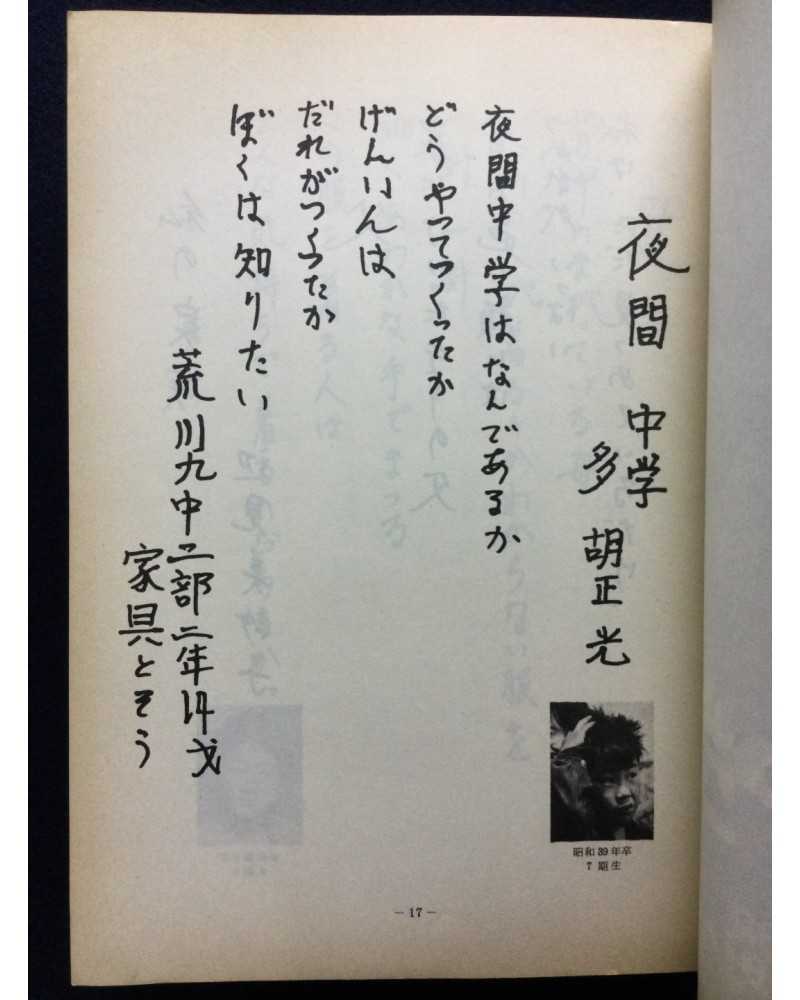 夜間中学
多胡正光
夜間中学はなんであるか
どうやってつくったか
げんいんは
だれがつくったか
ぼくは知りたい
荒川九中二部二年14才
家具とそう
昭和39年卒
7期生
－17－